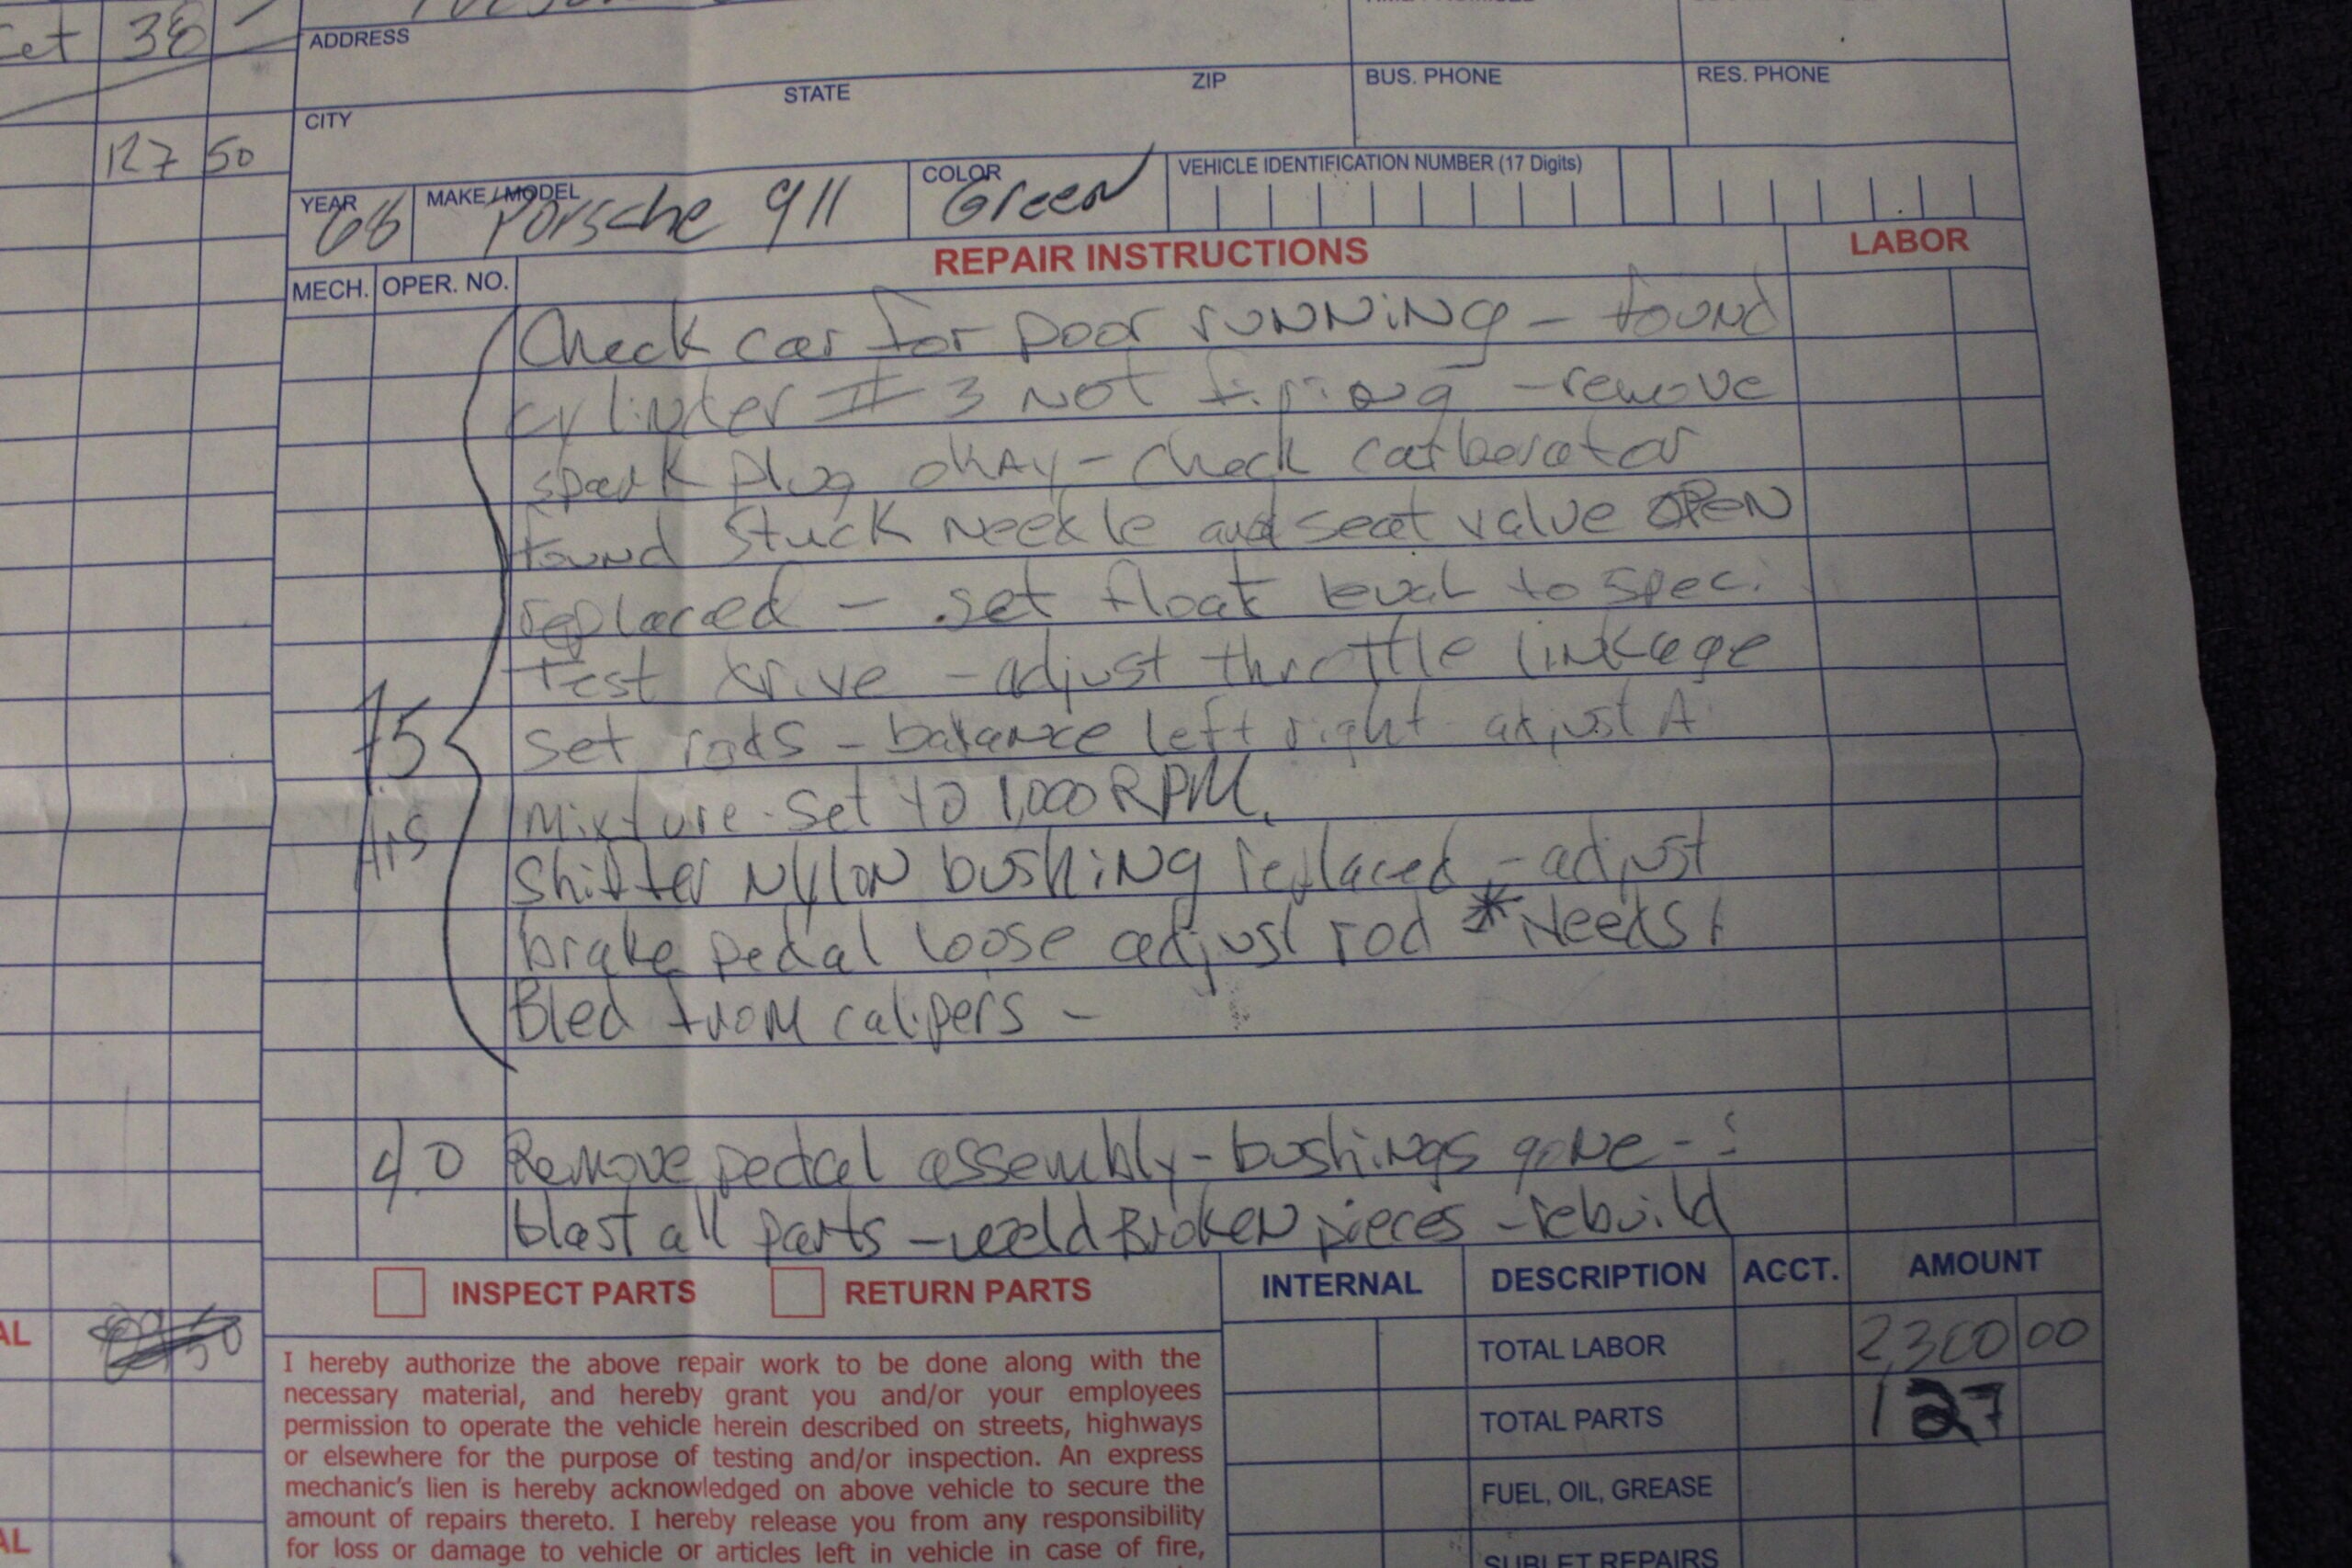 38
ADDRESS
STATE ZIP BUS. PHONE RES. PHONE
CITY
127 50
YEAR 68 MAKE / MODEL Porsche 911 COLOR Green VEHICLE IDENTIFICATION NUMBER (17 Digits)
REPAIR INSTRUCTIONS LABOR
MECH. OPER. NO.
Check car for poor running - found
cylinder # 3 not firing - remove
spark plug okay - check carberator
found stuck needle and seat valve OPEN
replaced - set float level to spec.
Test drive - adjust throttle linkage
set rods - balance left right adjust A
mixture - set to 1,000 RPM.
7.5 Hrs
Shifter Nylon bushing replaced - adjust
brake pedal loose adjust rod * Needs
Bled from calipers -
4.0 Remove pedal assembly - bushings gone -
blast all parts - weld Broken pieces - rebuild
INSPECT PARTS RETURN PARTS INTERNAL DESCRIPTION ACCT. AMOUNT
TOTAL LABOR 2,300 00
TOTAL PARTS 127
FUEL, OIL, GREASE
SUBLET REPAIRS
I hereby authorize the above repair work to be done along with the
necessary material, and hereby grant you and/or your employees
permission to operate the vehicle herein described on streets, highways
or elsewhere for the purpose of testing and/or inspection. An express
mechanic's lien is hereby acknowledged on above vehicle to secure the
amount of repairs thereto. I hereby release you from any responsibility
for loss or damage to vehicle or articles left in vehicle in case of fire,